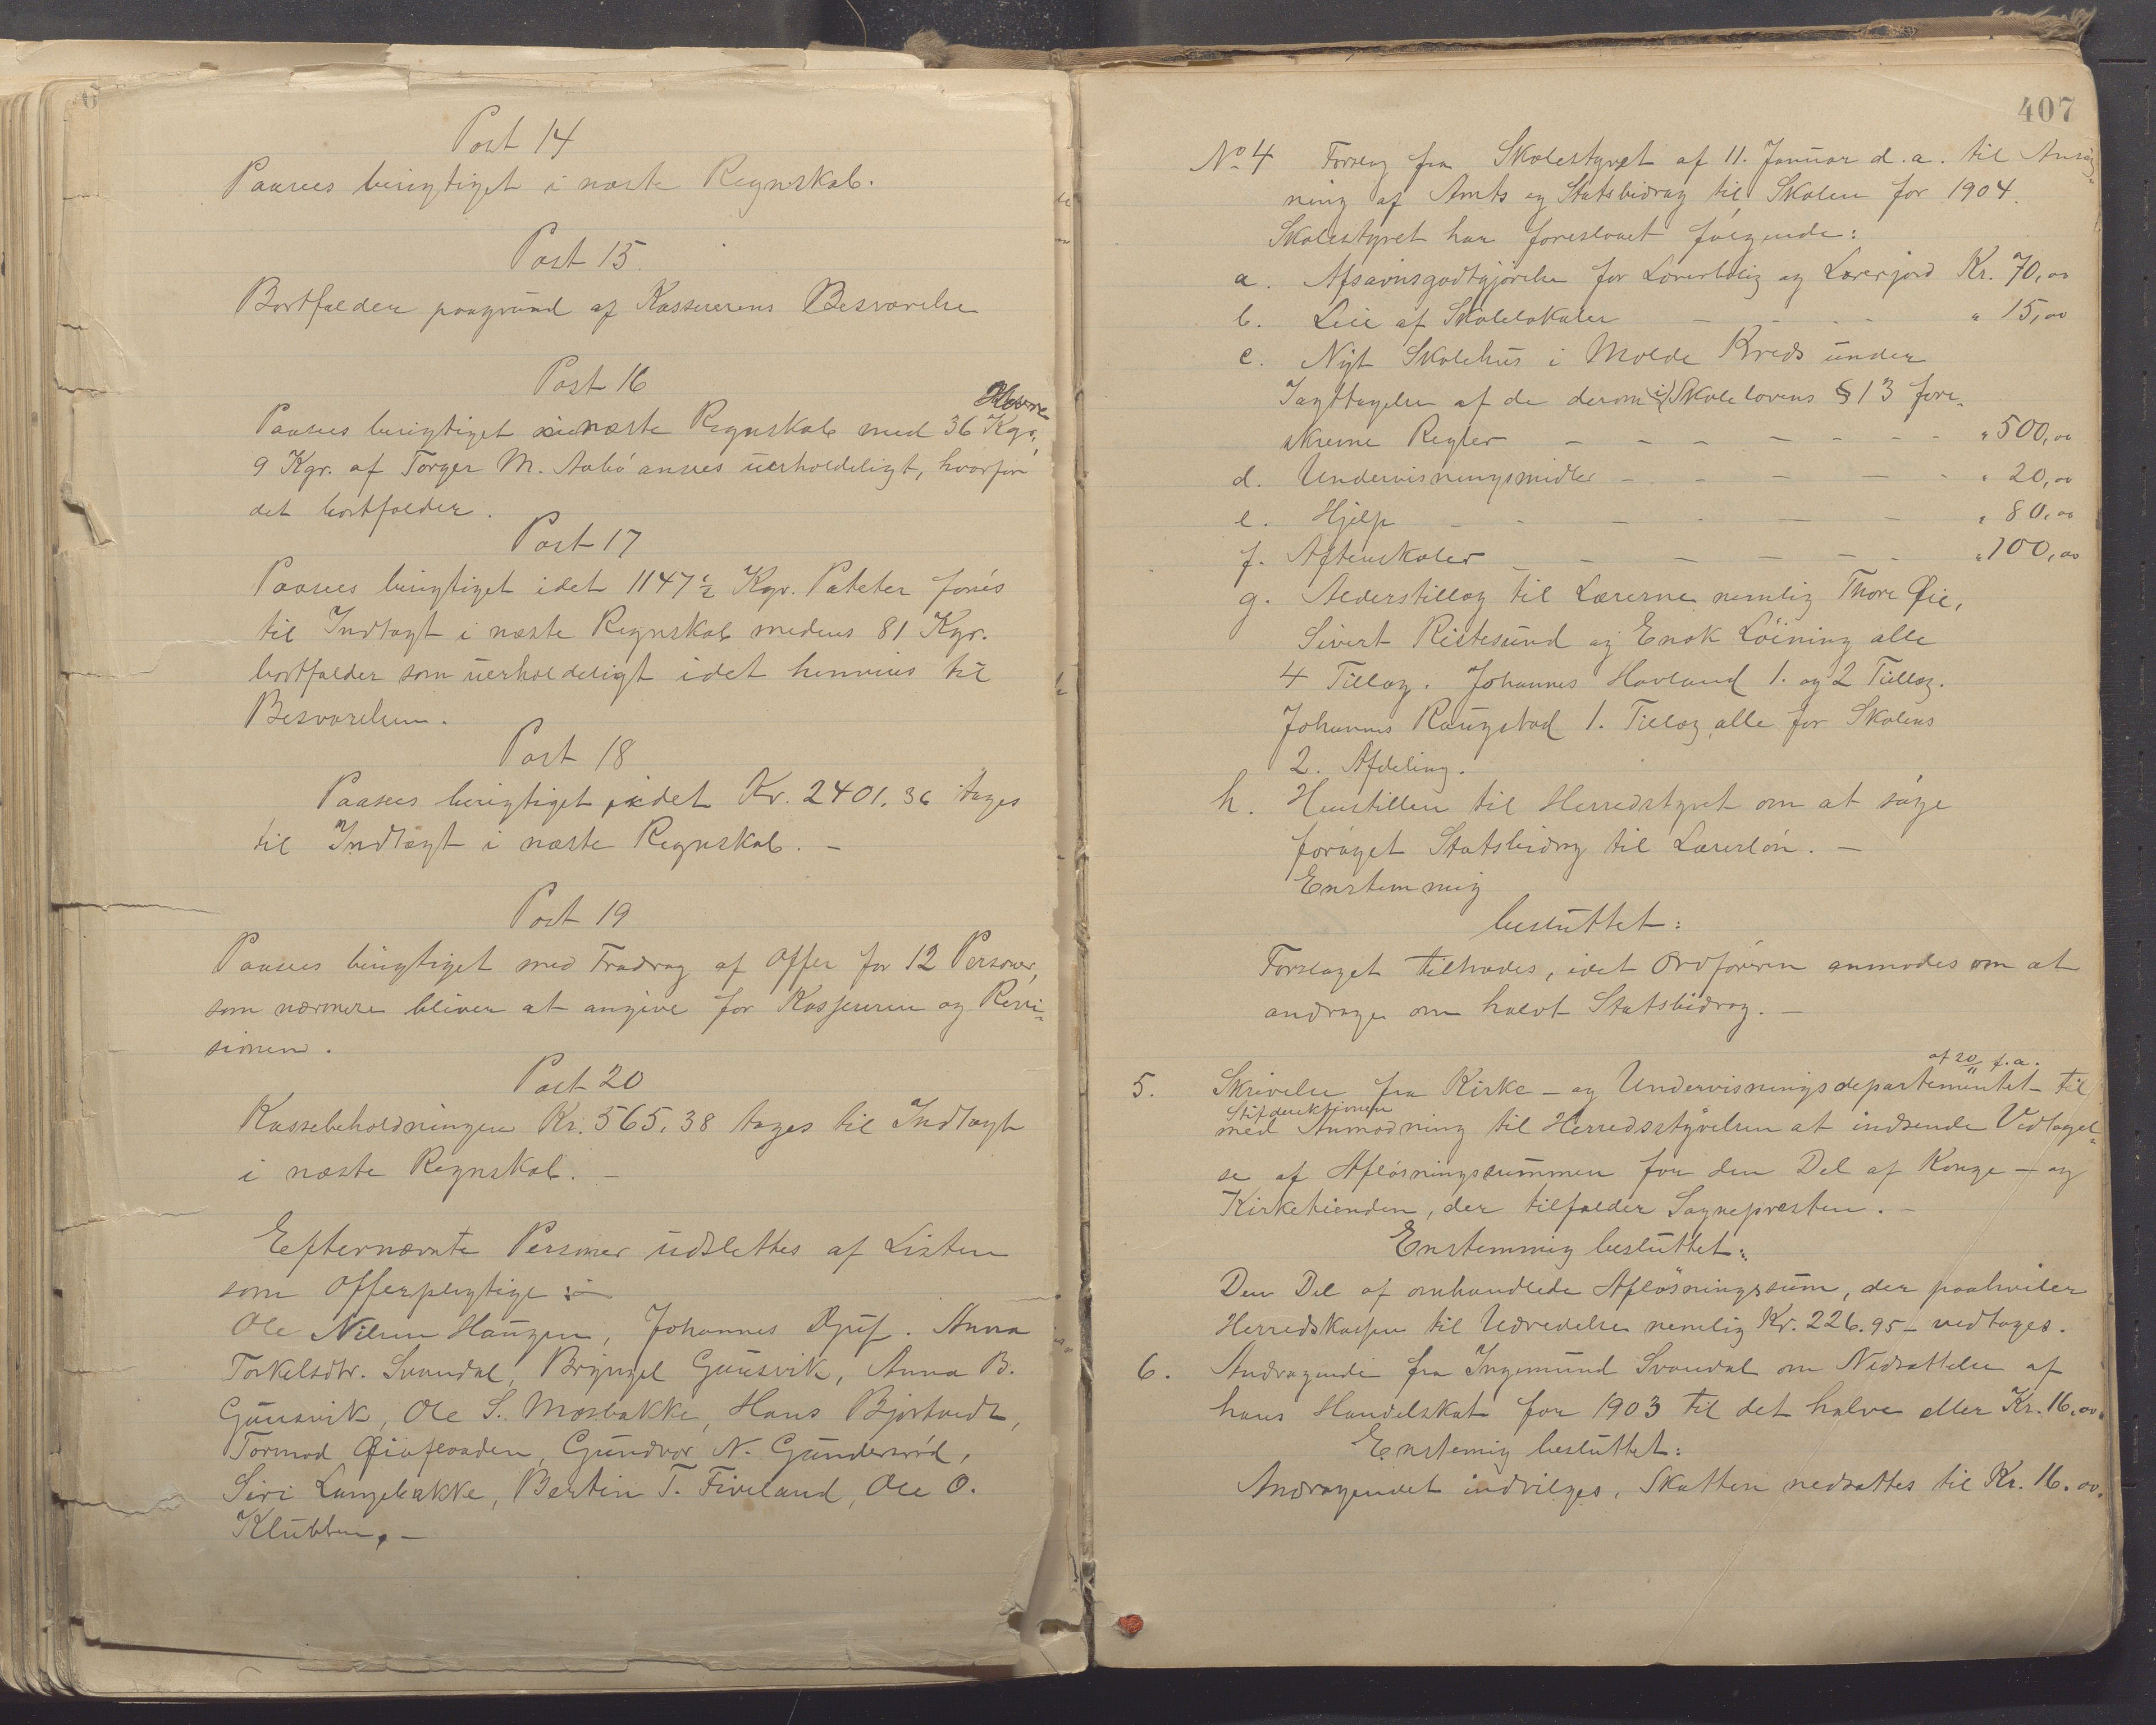 Post 14
Paasees berigtiget i næste Regnskab.
Post 15.
Bortfalder paagrund af Kassererens Besvarelse
Post 16
Havre
Paasees berigtiget i næste Regnskab med 36 Kgr,
9 Kgr. af Torger M. Aabø ansees uerholdeligt, hvorfor
det bortfalder.
Post 17
Paasees berigtiget idet 1147 1/2 Kgr. Poteter føres
til Indtægt i næste Regnskab medens 81 Kgr.
bortfalder som uerholdeligt idet henvises til
Besvarelsen.
Post 18
Paasees berigtiget, idet Kr. 2401.36 tages
til Indtægt i næste Regnskab. –
Post 19
Paasees berigtiget med Fradrag af Offer for 12 Personer,
som nærmere bliver at angive for Kassereren og Revi=
sionen.
Post 20
Kassebeholdningen Kr. 565.38 tages til Indtægt
i næste Regnskab. –
Efternævnte Personer udslettes af Listen
som Offerpligtige: –
Ole Nilsen Haugen, Johannes Djuf. Anna
Torkelsdtr. Svandal, Bryngel Gunsvik, Anna B.
Gunsvik, Ole S. Mosbakke, Hans Bjørtvedt,
Tormod, Gundvor N. Gundersrød,
Siri Langebakke, Bertin T. Fiveland, Ole O.
Klubben. –
407
No 4 Forslag fra Skolestyret af 11. Januar d.a. til Ansøg=
ning af Amts og Statsbidrag til Skolen for 1904.
Skolestyret har foreslaaet følgende:
a. Afsavnsgodtgjørelse for Lærerbolig og Lærerjord Kr. 70,00
b. Leie af Skolelokaler – – – " 15,00
c. Nyt Skolehus i Molde Kreds under
Iagttagelse af de derom i Skolelovens § 13 fore-
skrevne Regler – – – – – – – " 500,00
d. Undervisningsmidler – – – – – – " 20,00
e. Hjelp – – – – – – " 80,00
f. Aftenskoler – – – – – – " 100,00
g. Alderstillæg til Lærerne nemlig Thore Øie,
Sivert Ristesund og Enok Løining alle
4 Tillæg. Johannes Havland 1. og 2 Tillæg.
Johannes Raugstad 1. Tillæg, alle for Skolens
2. Afdeling.
h. Henstiller til Herredstyret om at søge
forøget Statsbidrag til Lærerløn. –
Enstemmig
besluttet:
Forslaget tiltrædes, idet Ordføreren anmodes om at
andrage om halvt Statsbidrag. –
af 20/11 f.a.
5. Skrivelse fra Kirke- og Undervisningsdepartementet til
Stifdirektionen
med Anmodning til Herredsstyrelsen at indsende Vedtagel=
se af Afløsningssummen for den Del af Konge- og
Kirketienden, der tilfalder Sognepresten. –
Enstemmig besluttet:
Den Del af omhandlede Afløsningssum, der paahviler
Herredskassen til Udredelse nemlig Kr. 226.95 – vedtages.
6. Andragende fra Ingemund Svandal om Nedsættelse af
hans Handelskat for 1903 til det halve eller Kr. 16.00.
Enstemig besluttet:
Andragendet indvilges. Skatten nedsættes til Kr. 16.00.